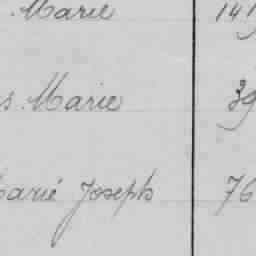 Marie 141
s Marie 39
Marié Joseph 76